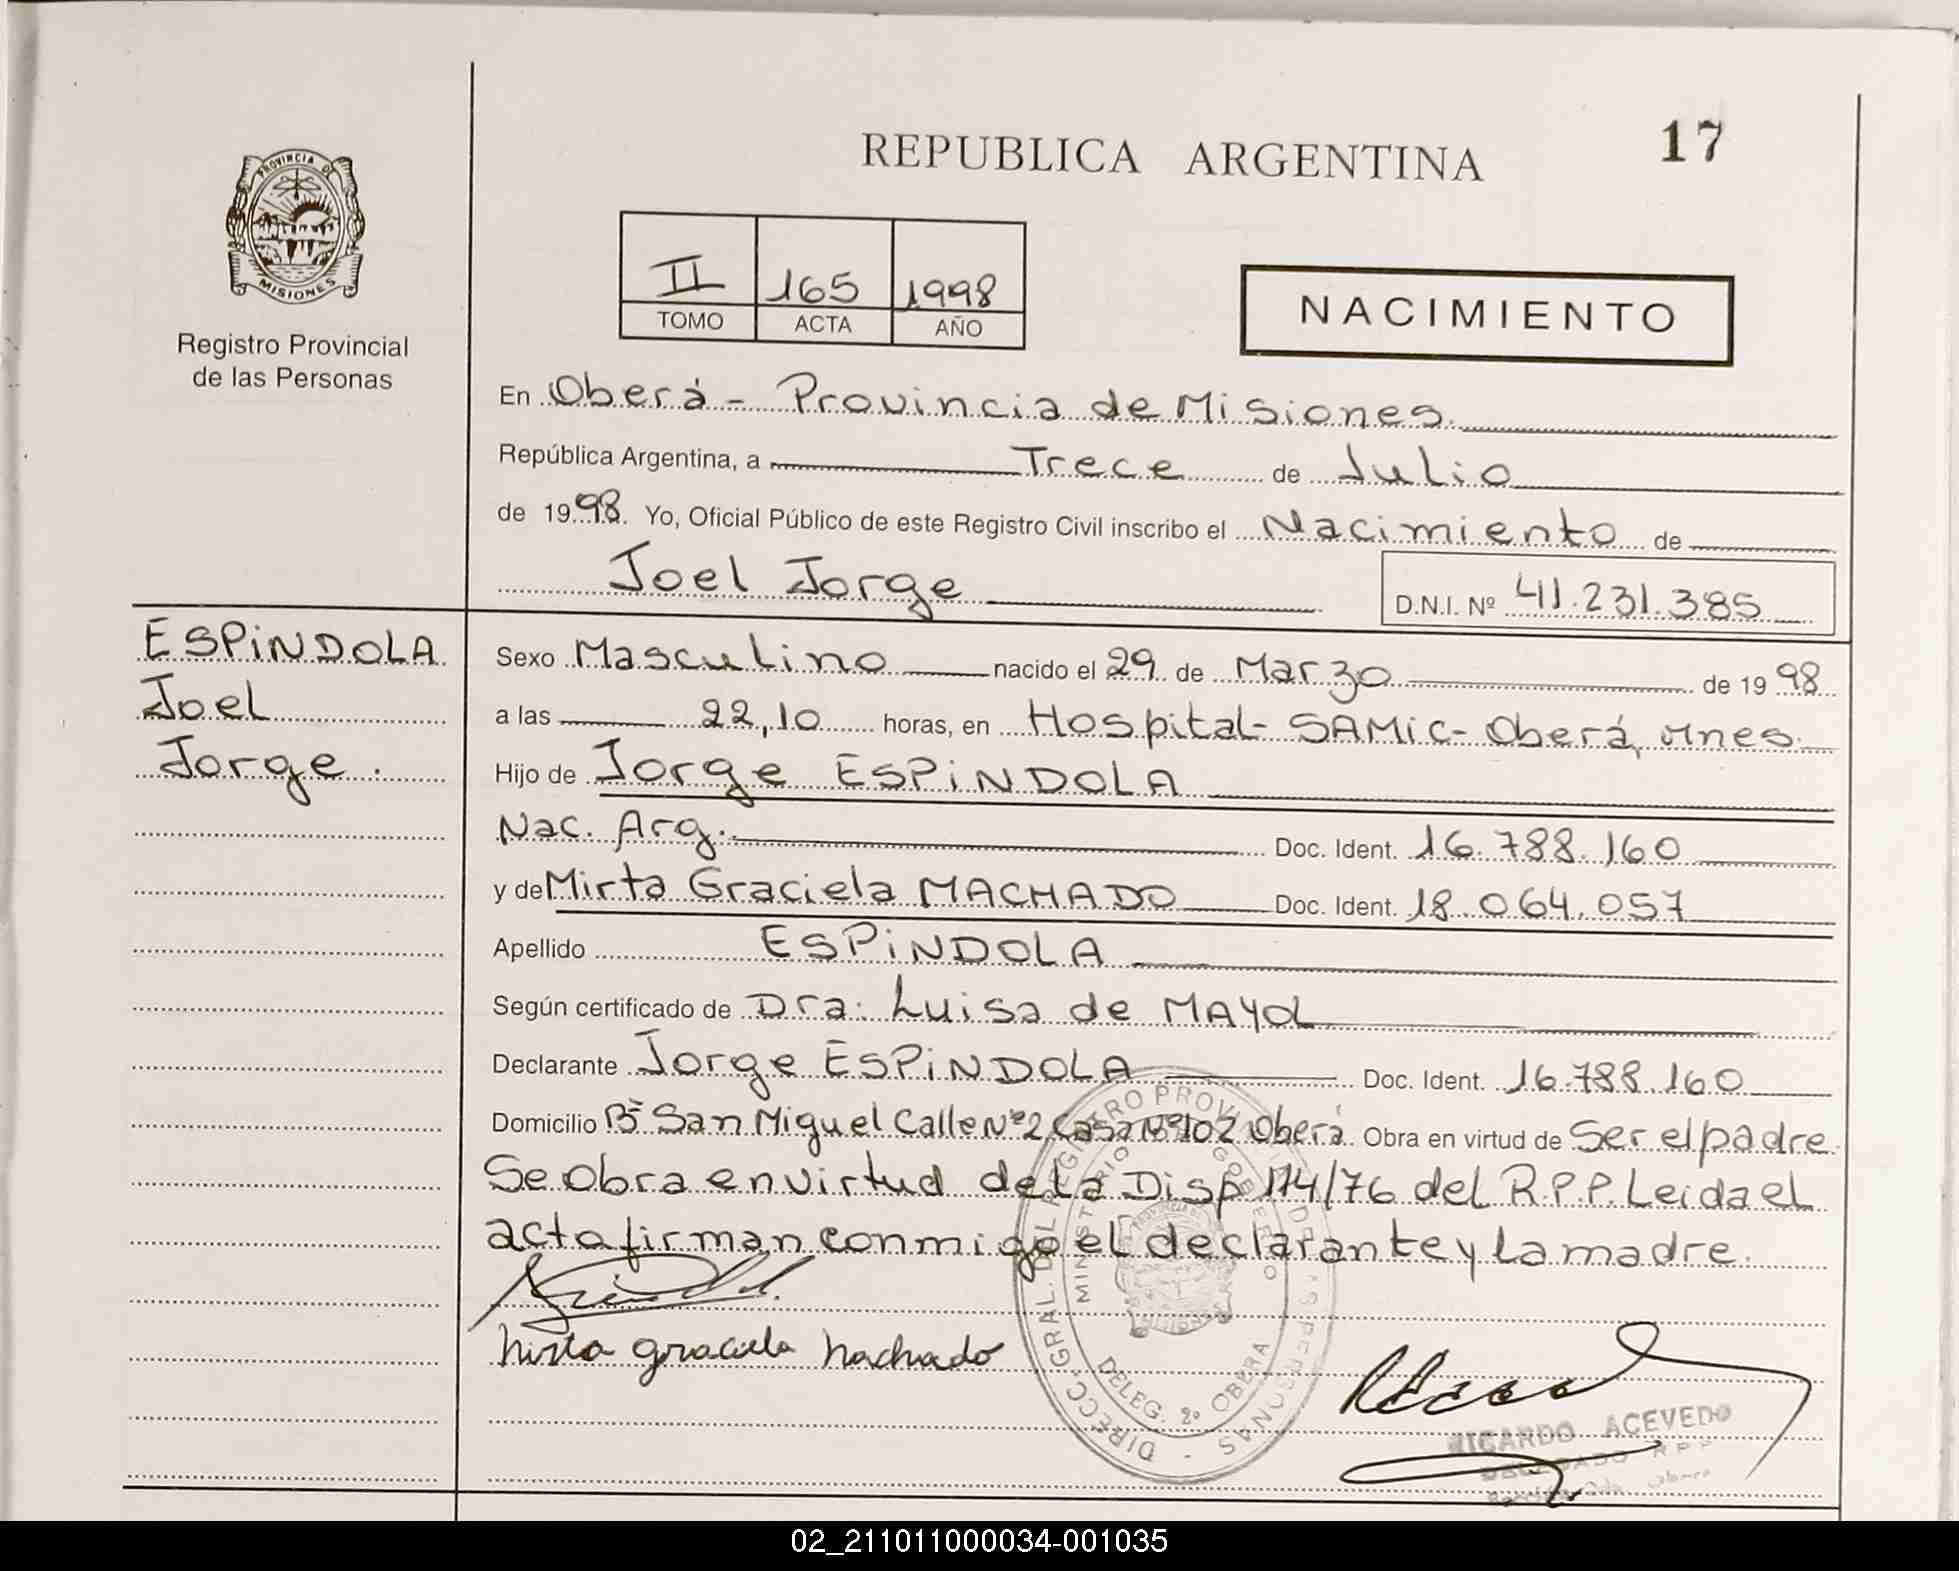 REPUBLICA ARGENTINA
17
PROVINCIA DE
MISIONES
Registro Provincial
de las Personas
II 165 1998
TOMO ACTA AÑO
NACIMIENTO
En Oberá - Provincia de Misiones.
República Argentina, a Trece de Julio
de 1998. Yo, Oficial Público de este Registro Civil inscribo el Nacimiento de
Joel Jorge
D.N.I. Nº 41.231.385
ESPiNDOLA
Joel
Jorge.
Sexo Masculino nacido el 29 de Marzo de 1998
a las 22,10 horas, en Hospital-SAMiC-Oberá, Mnes.
Hijo de Jorge ESPiNDOLA
Nac. Arg. Doc. Ident. 16.788.160
y de Mirta Graciela MACHADO Doc. Ident. 18.064.057
Apellido ESPiNDOLA
Según certificado de Dra: Luisa de MAYOL
Declarante Jorge ESPiNDOLA Doc. Ident. 16.788.160
Domicilio Bº San Miguel Calle Nº2 Casa Nº102 Oberá. Obra en virtud de Ser el padre
Se obra en virtud de la Disp 174/76 del R.P.P. Leida el
acta firman conmigo el declarante y la madre.
Mirta graciela Machado
DIRECC. GRAL. DEL REGISTRO PROVINCIAL DE LAS PERSONAS
MINISTERIO GOBIERNO
DELEG. 2º OBERA
RICARDO ACEVEDO
DELEGADO R P P
02_211011000034-001035